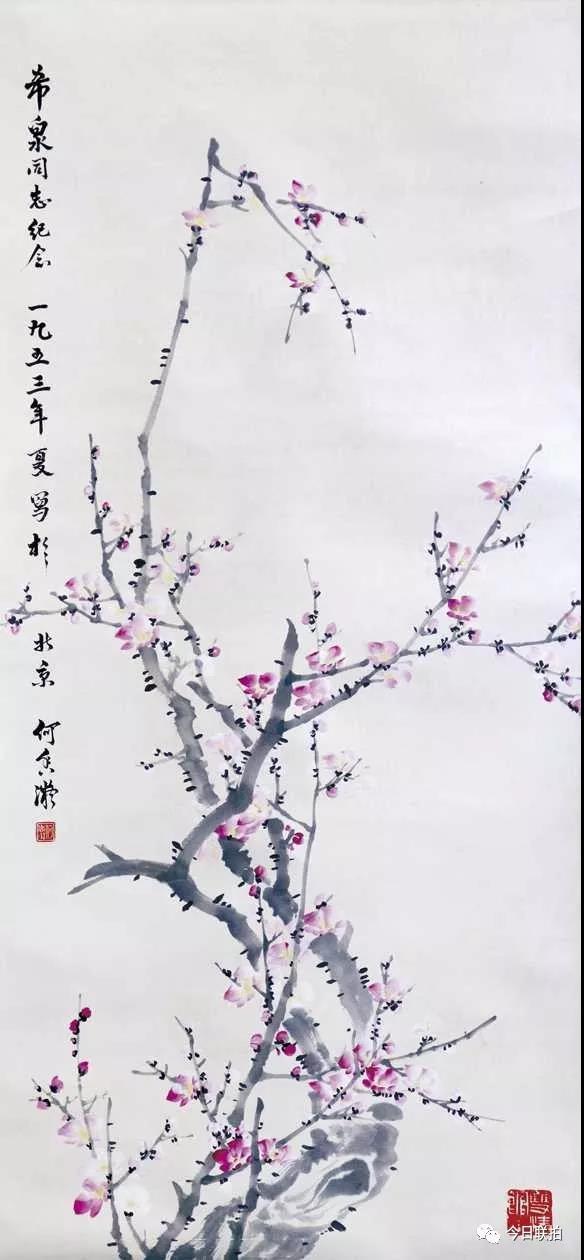 希泉同志纪念 一九五三年夏写於
北京 何香凝
今日联拍